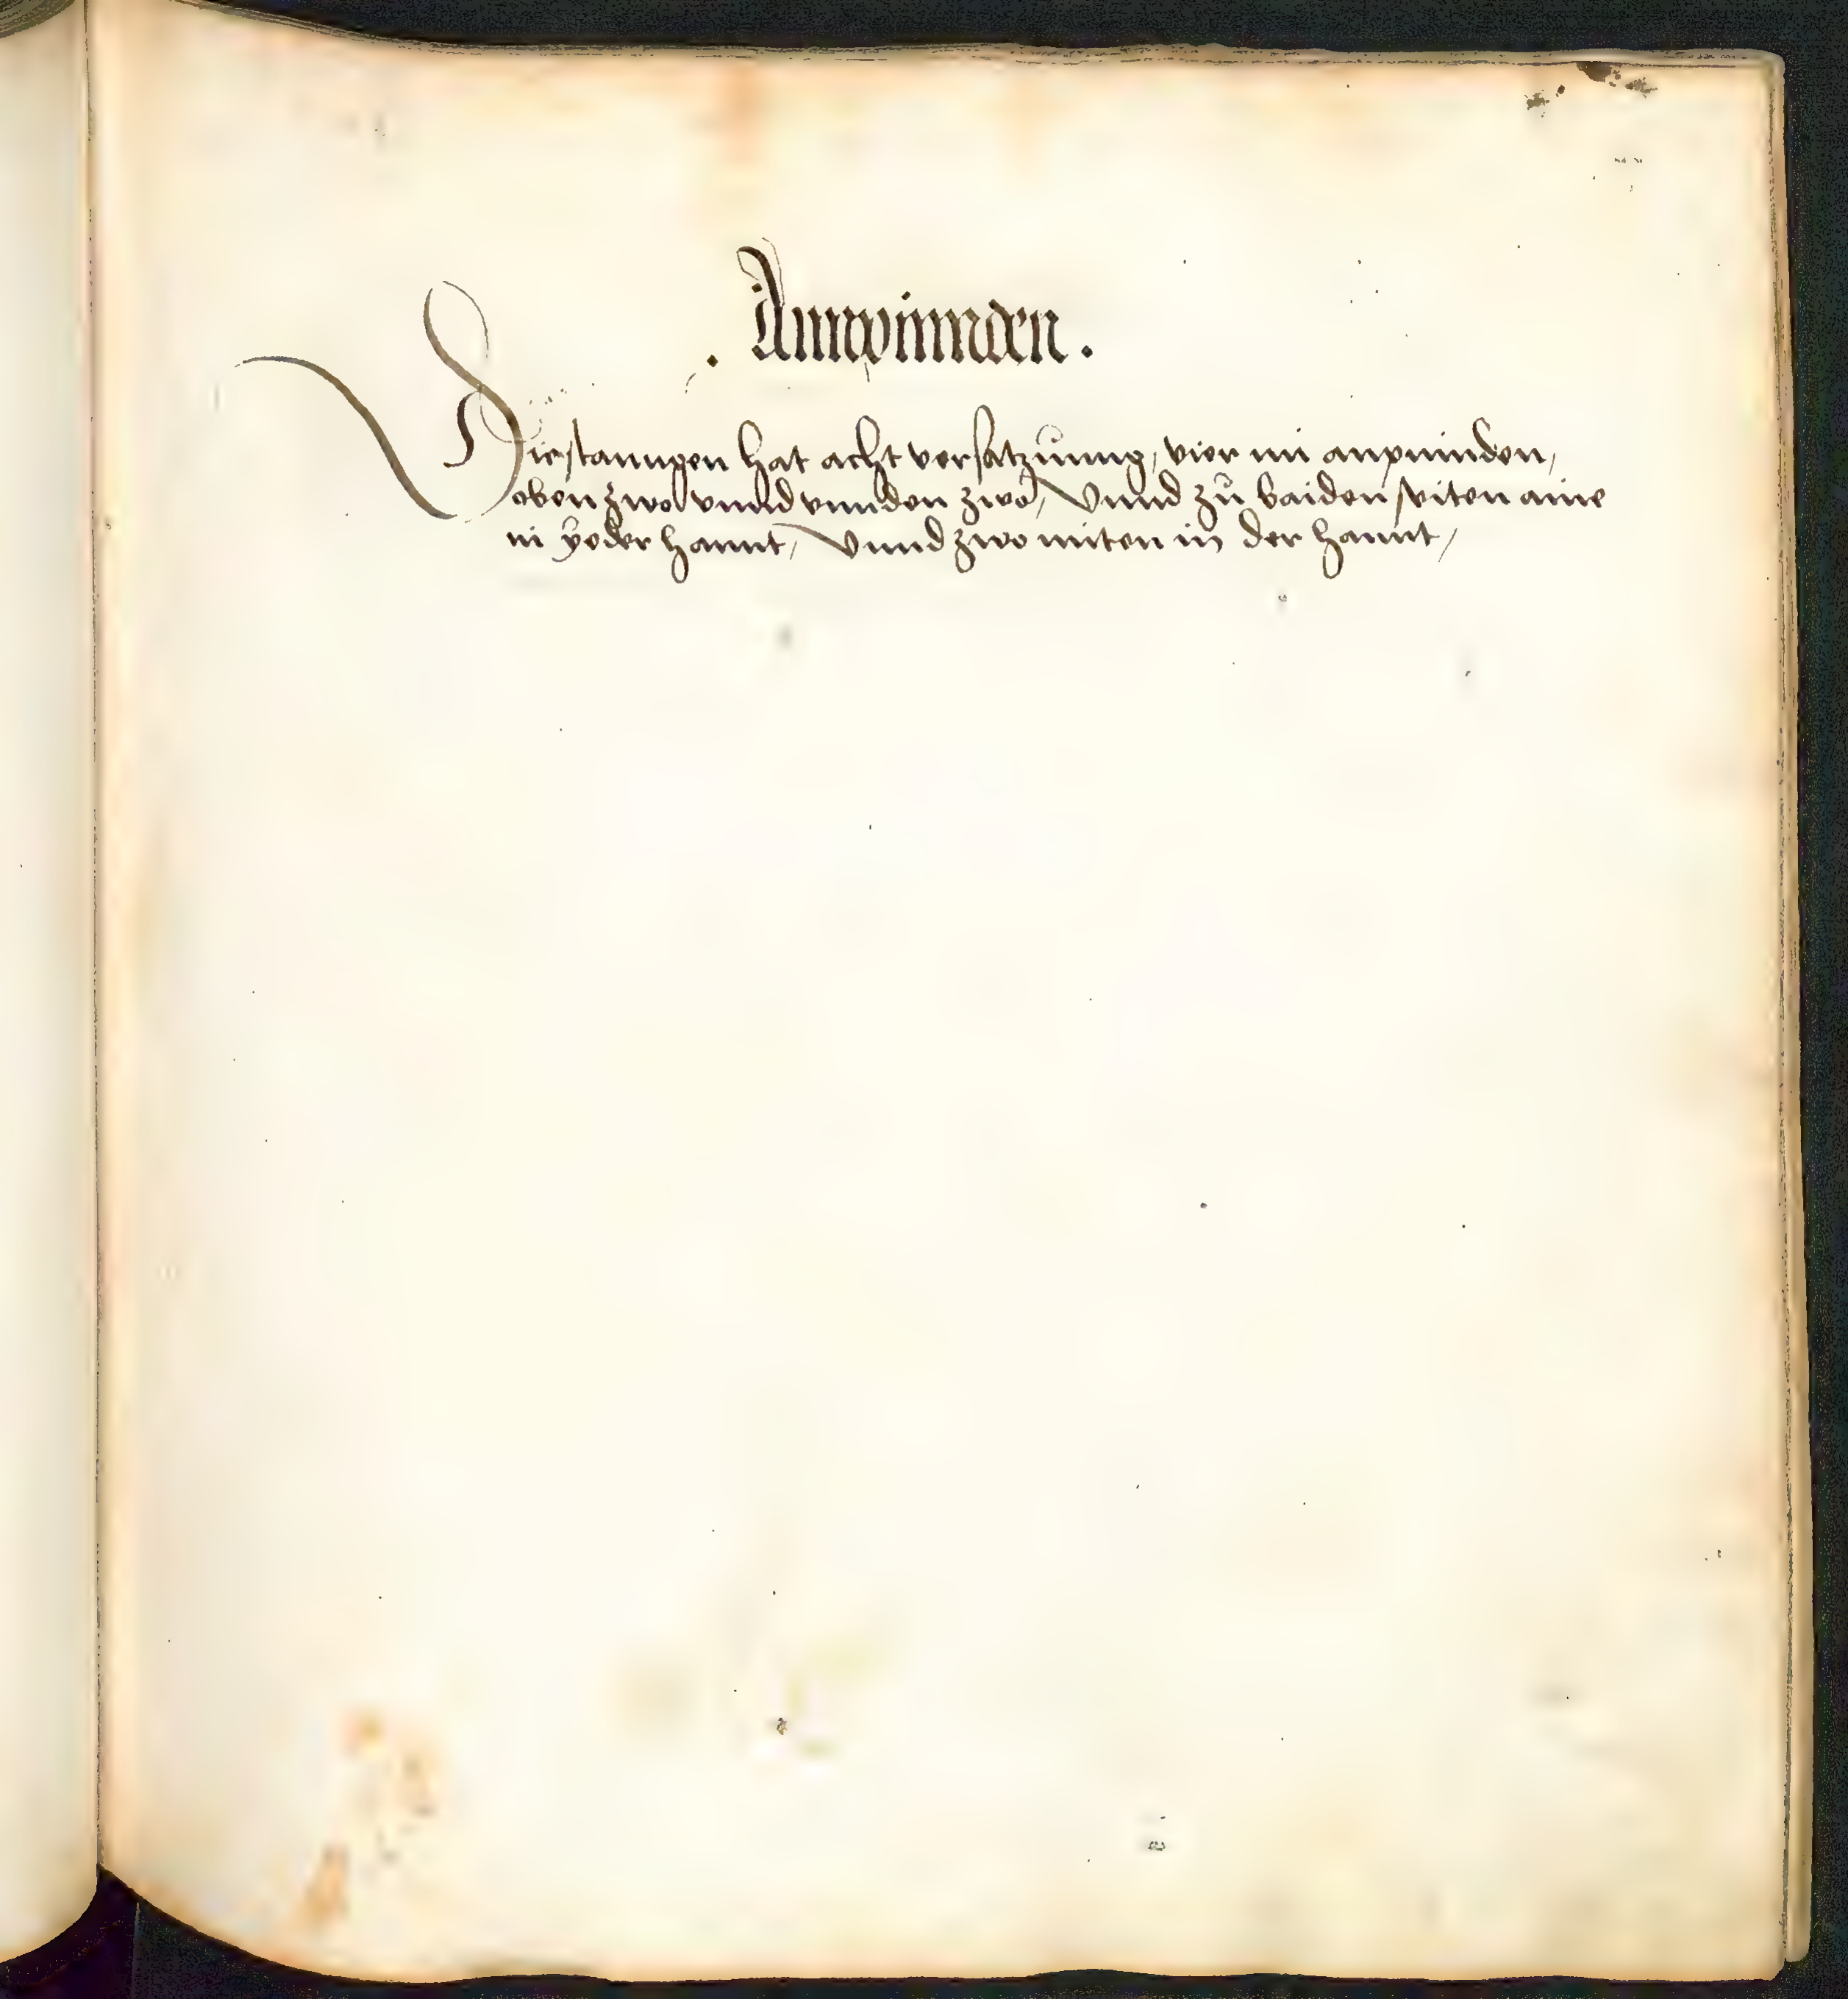 . Annwinnden .
Die stanngen hat acht versatzůnng, vier im anpinden,
oben zwo vnnd vnnden zwo, Vnnd zů baiden seiten aine
in ÿeder hannt, Vnnd zwo miten in der hannt,